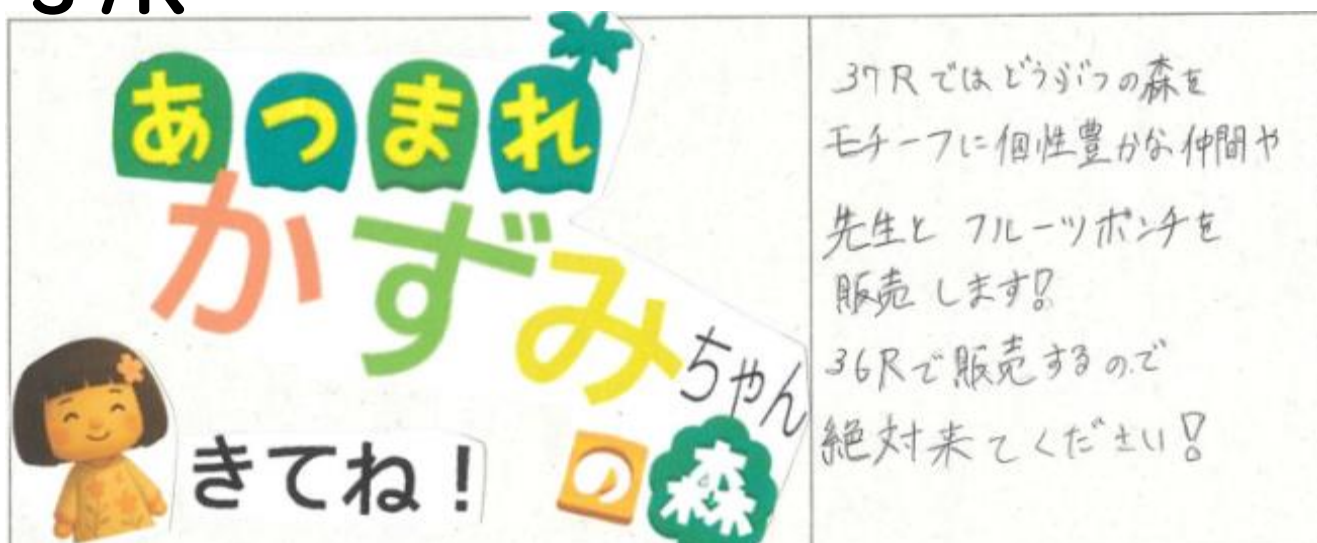 37R
あつまれ
かずみちゃん
の森
きてね！
37Rではどうぶつの森を
モチーフに個性豊かな仲間や
先生とフルーツポンチを
販売します!
36Rで販売するので
絶対来てください!